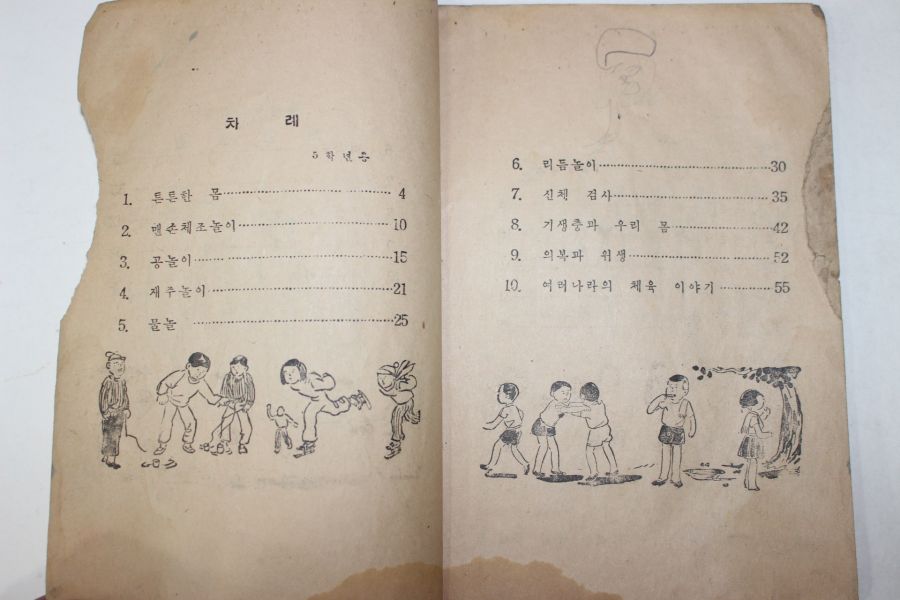 차 례
5학년용
1. 튼튼한 몸 4
2. 맨손체조놀이 10
3. 공놀이 15
4. 재주놀이 21
5. 물놀 25
6. 리듬놀이 30
7. 신체 검사 35
8. 기생충과 우리 몸 42
9. 의복과 위생 52
10. 여러나라의 체육 이야기 55